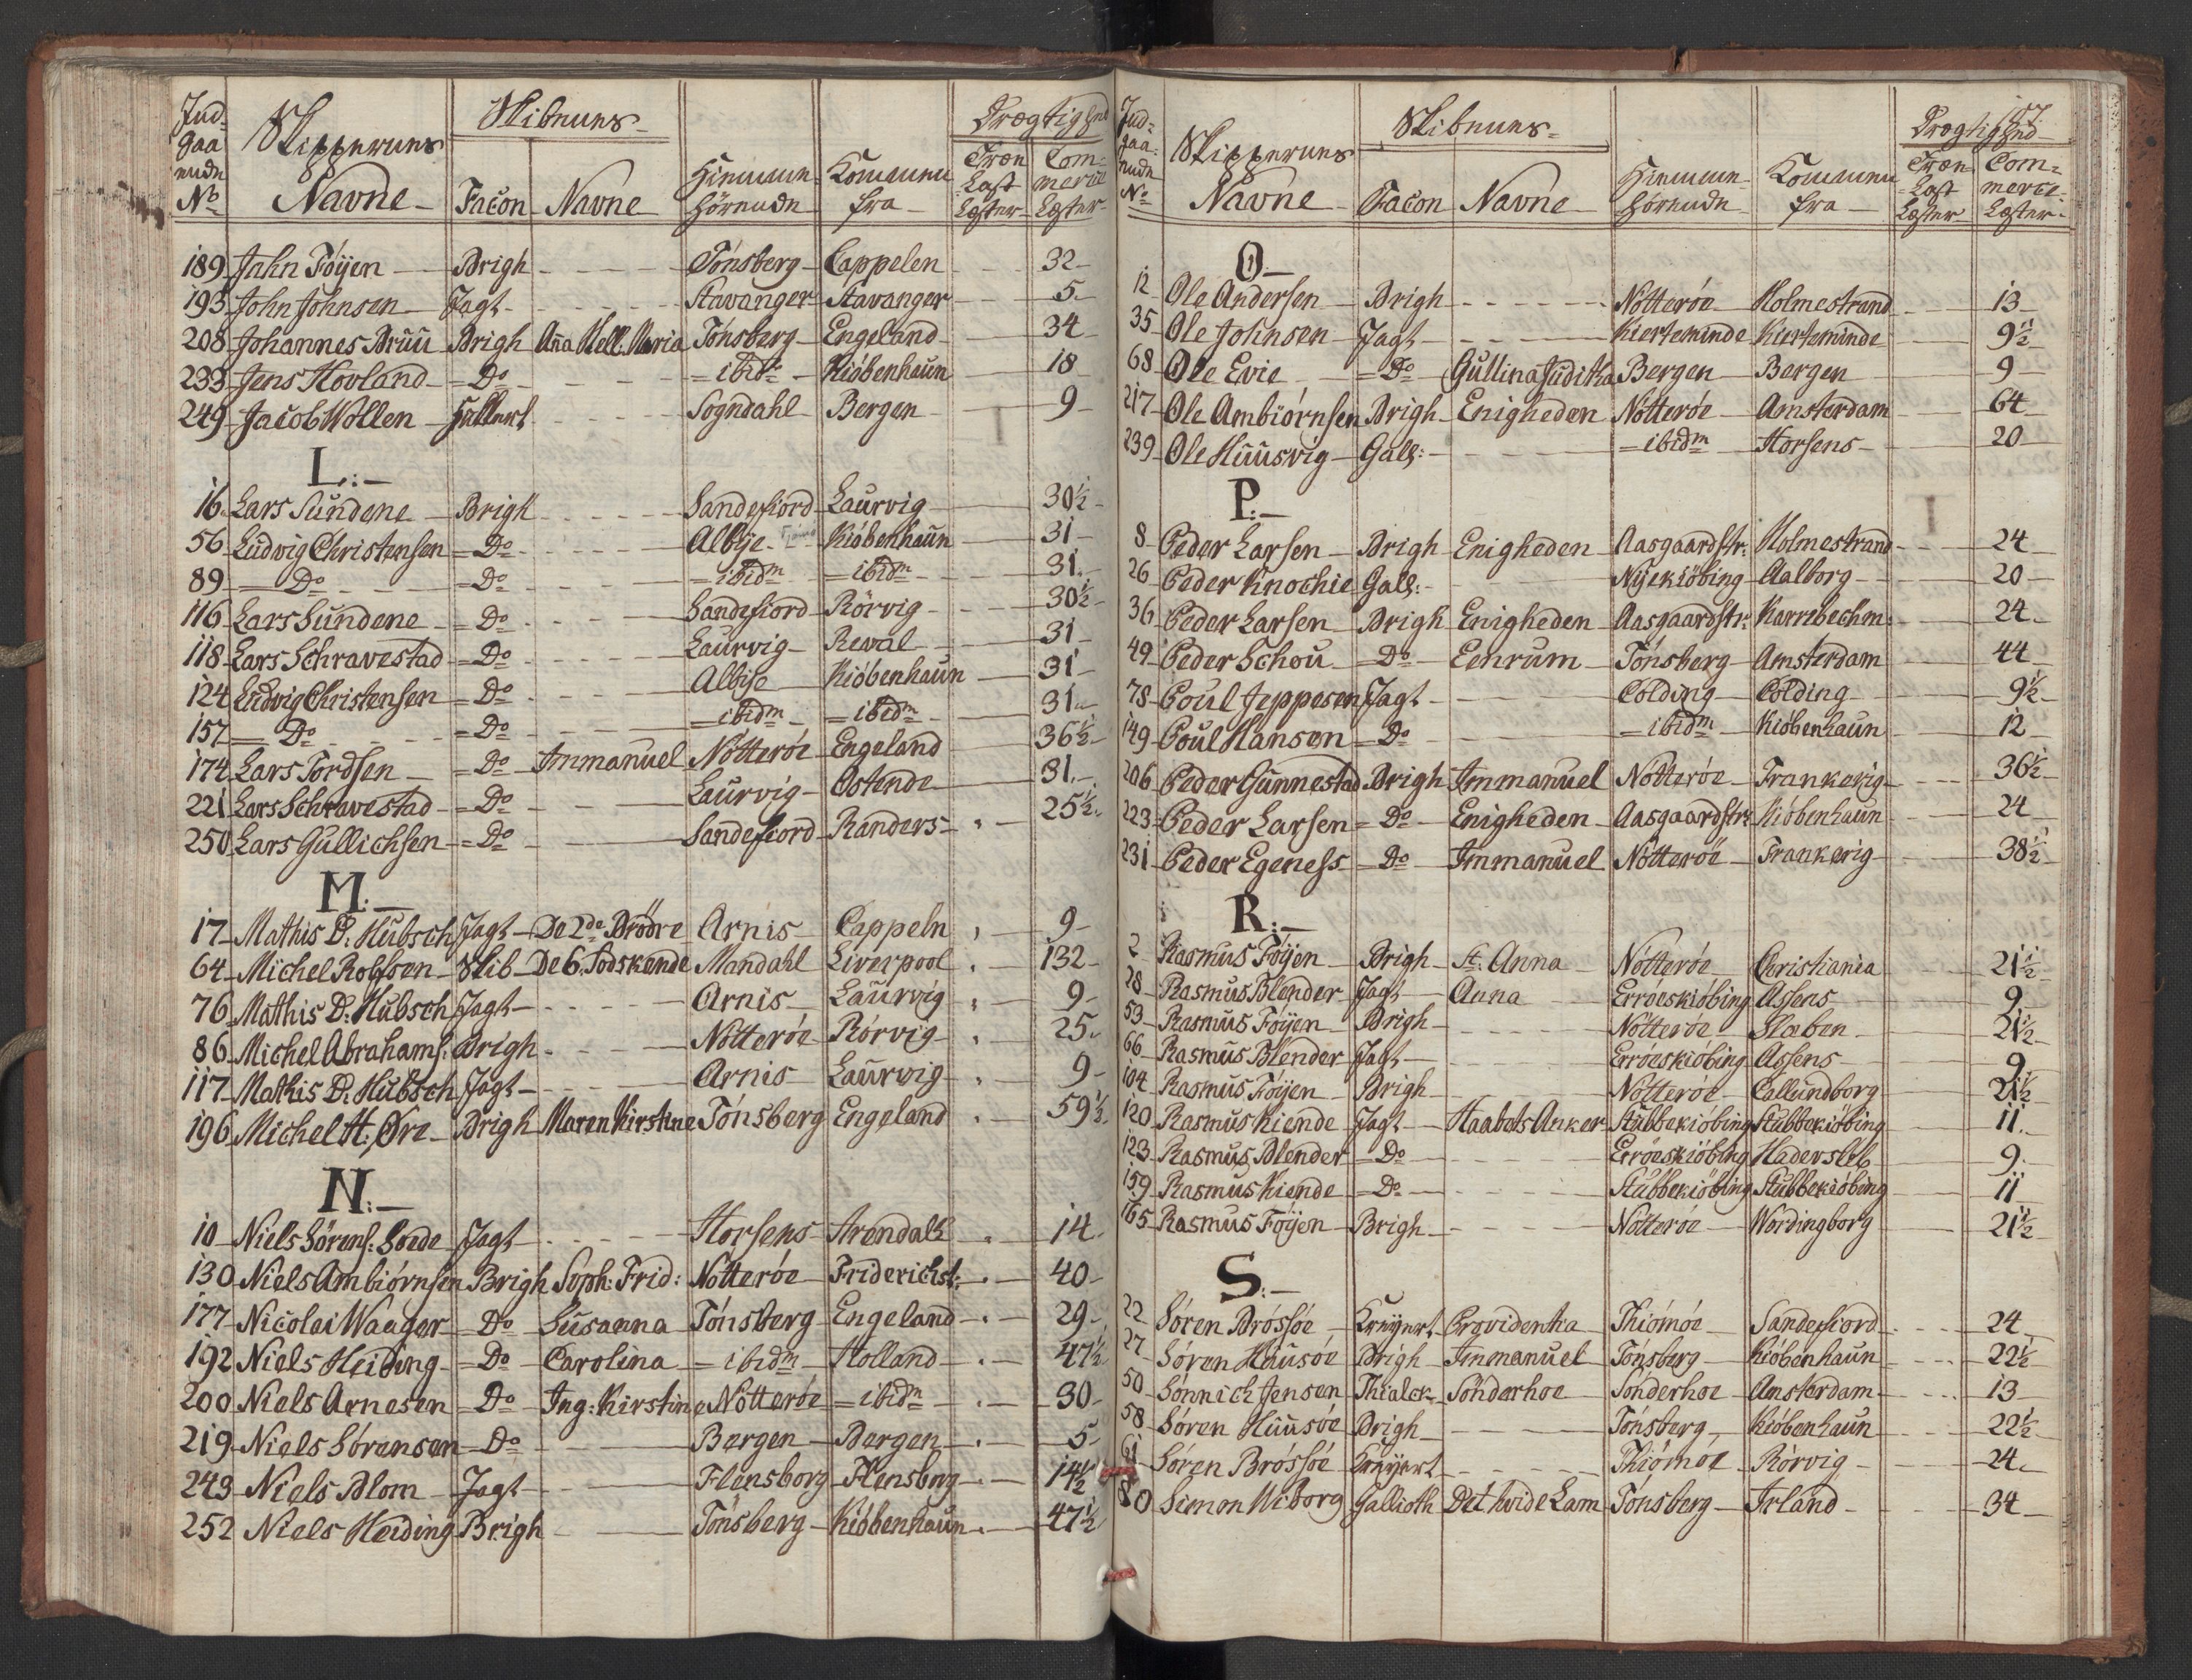 Ind- Skippernes Skibenes Drægtighed
gaaende Hiemme- Kommen Træ Com-
No Navne Facon Navne hörende fra Last Læster merce Læster
189 Jahn Föÿen Brigh Tönsberg Cappelen 32
193 John Johnsen Jagt Stavanger Stavanger 5
208 Johannes Brüü Brigh Aña Hell: Maria Tönsberg Engeland 34
233 Jens Hovland Do ibid: Kiöbenhaün 18
249 Jacob Wollen Sogndahl Bergen 9
L:
16 Lars Sündene Brigh Sandefiord Laürvig 30½
56 Lüdvig Christensen Do Albÿe Kiöbenhaün 31
89 Do Do ibidm ibidm 31
116 Lars Sündene Do Sandefiord Rörvig 30½
118 Lars Schravestad Do Laürvig Reval 31
124 Lüdvig Christensen Do Albÿe Kiöbenhaün 31
157 Do Do ibidm ibidm 31
174 Lars Tordsen Do Immanüel Nötteröe Engeland 36½
221 Lars Schravestad Do Laürvig Ostende 31
250 Lars Güllichsen Do Sandefiord Randers 25½
M:
17 Mathis D: Hübsch Jagt De 2de Brödre Arnis Cappeln 9
64 Michel Rolfsen Skib De 6 Södskende Mandahl Liverpool 132
76 Mathis D: Hübsch Jagt Arnis Laürvig 9
86 Michel Abrahams: Brigh Nötteröe Rörvig 25
117 Mathis D: Hübsch Jagt Arnis Laürvig 9
196 Michel H: Øre Brigh Maren Kirstine Tönsberg Engeland 59½
N:
10 Niels Sörens: Soede Jagt Horsens Arendall 14
130 Niels Ambiörnsen Brigh Soph: Frid: Nötteröe Friderichst: 40
177 Nicolai Waager Do Süsanna Tönsberg Engeland 29
192 Niels Heiding Do Carolina ibidm Holland 47½
200 Niels Arnesen Do Ing: Kirstine Nötteröe ibidm 30
219 Niels Sörensen Do Bergen Bergen 5
243 Niels Blom Jagt Flensborg Flensborg 14½
252 Niels Heiding Brigh Tönsberg Kiöbenhaün 47½
157
Ind- Skippernes Skibenes Drægtighed
gaaende Hiemme- Kommen Træ Com-
No Navne Facon Navne hörende fra Last Læster merce Læster
O
12 Ole Andersen Brigh Nötteröe Holmestrand 13
35 Ole Johnsen Jagt Kierteminde Kierteminde 9½
68 Ole Evie Do Güllina Jüditha Bergen Bergen 9
217 Ole Ambiörnsen Brigh Enigheden Nötteröe Amsterdam 64
239 Ole Hüüsvig Gall: ibidm Horsens 20
P:
8 Peder Larsen Brigh Enigheden Aasgaardstr: Holmestrand 24
26 Peder Knochie Gall: Nÿekiöbing Aalborg 20
36 Peder Larsen Brigh Enigheden Aasgaardstr: Karrebechm: 24
49 Peder Schou Do Eenrum Tönsberg Amsterdam 44
78 Poül Jeppesen Jagt Colding Colding 9½
149 Poül Hansen Do ibidm Kiöbenhaun 12
206 Peder Günnestad Brigh Immanüel Nötteröe Frankerig 36½
223 Peder Larsen Do Enigheden Aasgaardstr: Kiöbenhaun 24
231 Peder Egeness Do Immanüel Nötteröe Frankerig 38½
R:
2 Rasmus Föÿen Brigh St: Anna Nötteröe Christiania 21½
28 Rasmüs Blender Jagt Anna Erröeskiöbing Assens 9
53 Rasmüs Föÿen Brigh Nötteröe Slæben 21½
66 Rasmüs Blender Jagt Erröeskiöbing Assens 9
104 Rasmüs Föÿen Brigh Nötteröe Callündborg 21½
120 Rasmüs Kiende Jagt Haabets Anker Stübbekiöbing Stübbekiöbing 11
123 Rasmüs Blender Do Erröeskiöbing Hadersleb 9
159 Rasmüs Kiende Do Stübbekiöbing Stübbekiöbing 11
165 Rasmüs Föÿen Brigh Nötteröe Wordingborg 21½
S:
22 Sören Brössöe Kreÿert Providentia Thiömöe Sandefiord 24
27 Sören Hüüsöe Brigh Immanüel Tönsberg Kiöbenhaun 22½
50 Sönnich Jensen Thialck Sönderhoe Sönderhoe Amsterdam 13
58 Sören Hüüsöe Brigh Tönsberg Kiöbenhaun 22½
61 Sören Brössöe Kreÿert Thiömöe Rörvig 24
80 Simon Wiborg Gallioth Det hvide Lam Tönsberg Irland 34